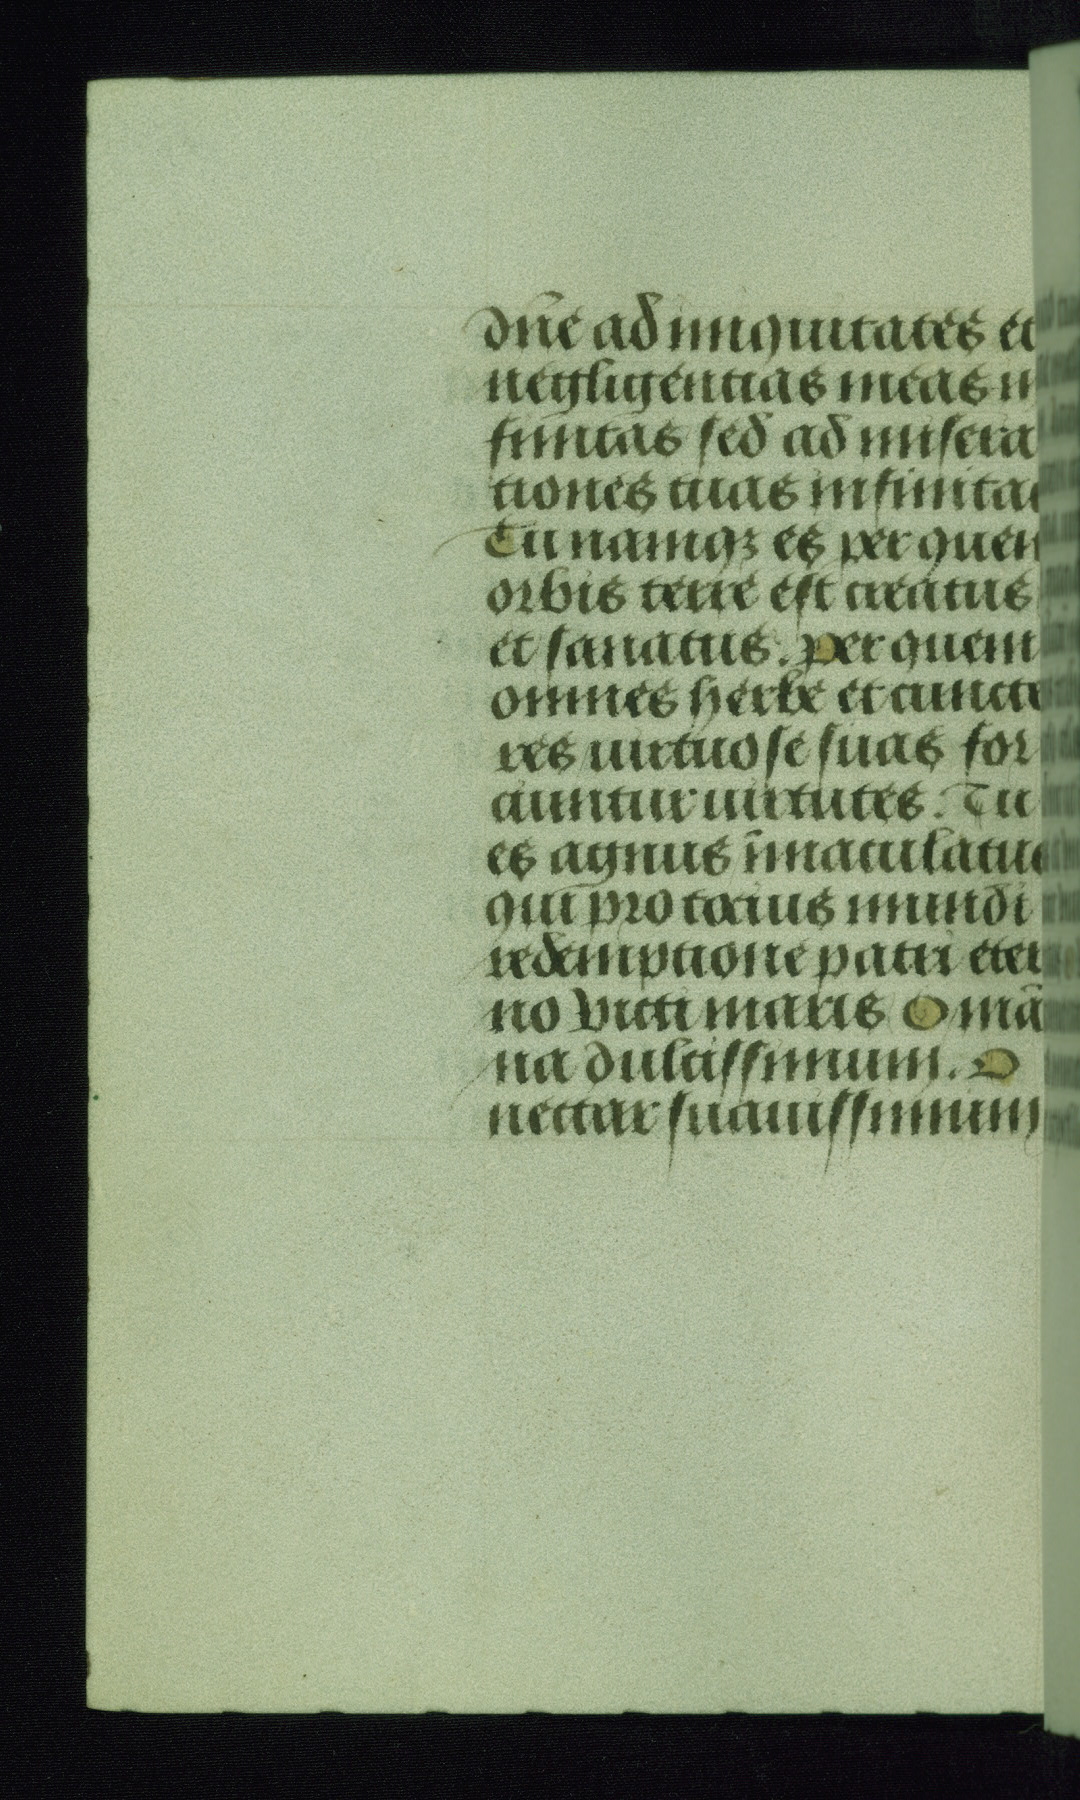 dn̄e ad iniquitates et
negligentias meas in
finitas sed ad misera
tiones tuas infinitas
Tu namqꝫ es per quem
orbis terre est creatus
et sanatus. per quem
omnes herbe et cuncte
res uirtuose suas sor
ciuntur uirtutes. Tu
es agnus īmaculatus
qui pro tocius mundi
redemptione patri eter
no victimaris O mā
na dulcissimum. O
nectar suauissimum